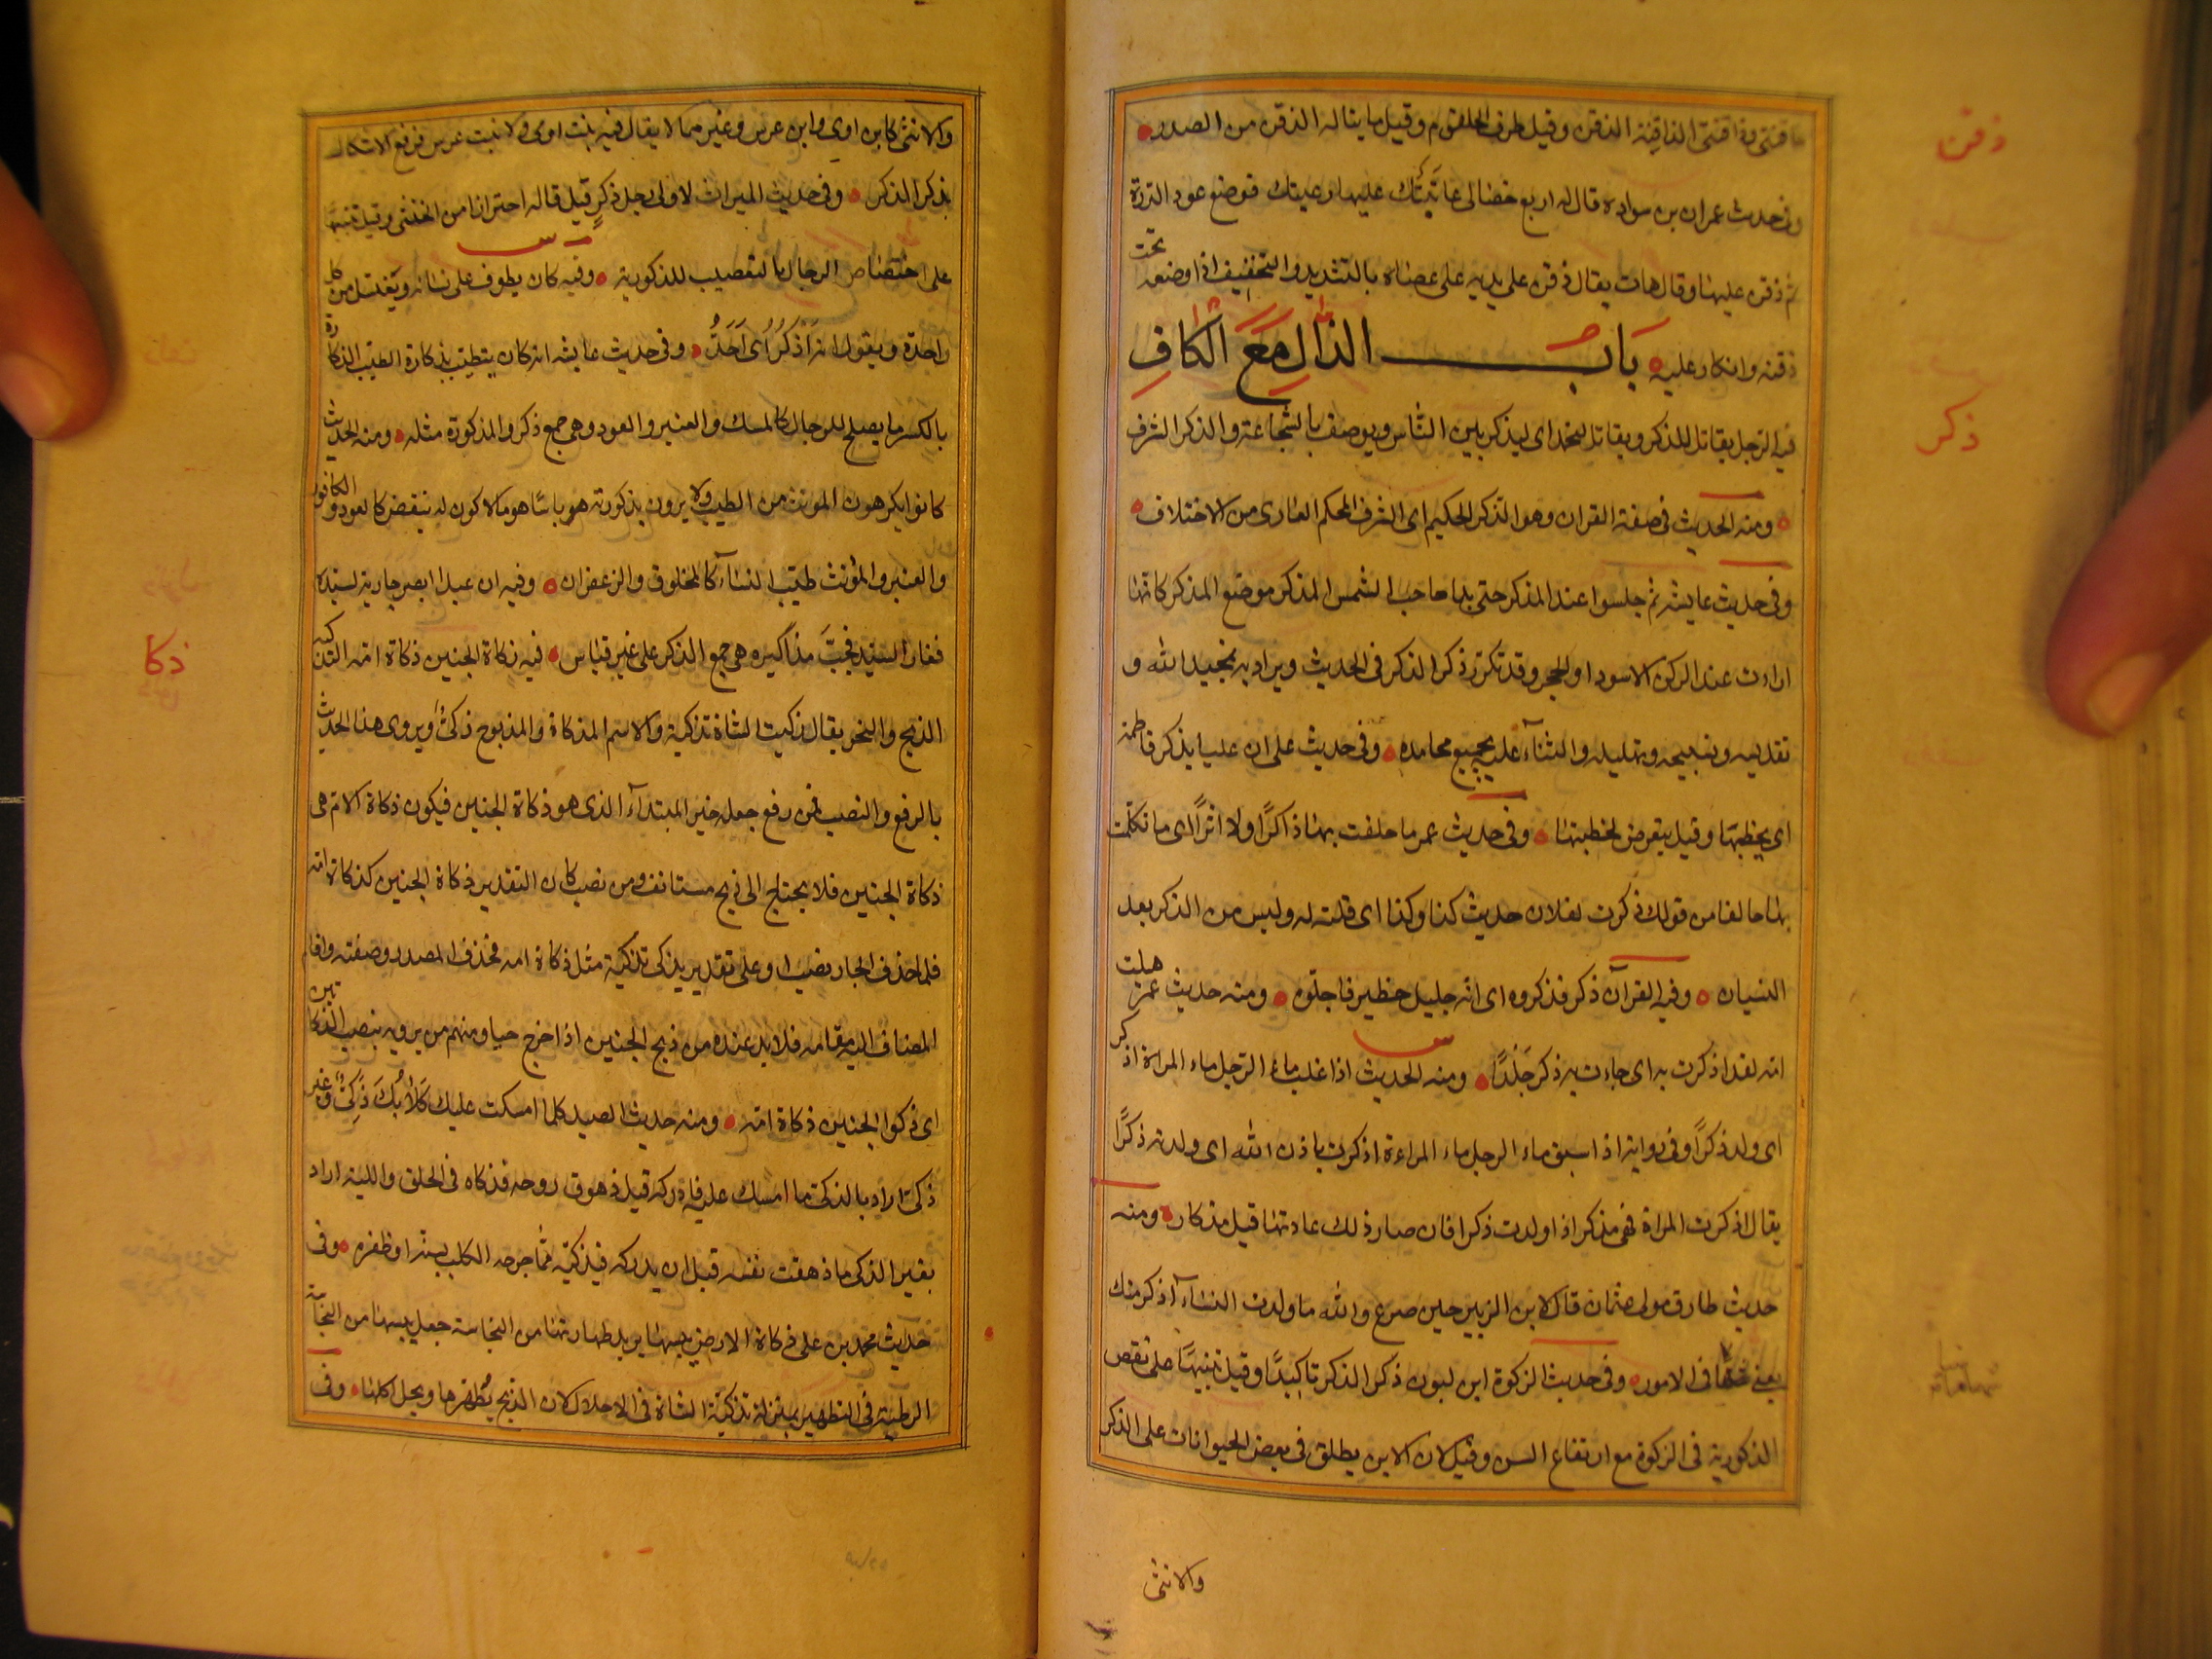 حاقنتي وذاقنتي الذاقنة الذقن وقيل طرف الحلقوم وقيل ما يناله الذقن من الصدر
ذقن
وفي حديث عمران بن سوادة قال له اربع خصال عاتبتك عليها رعيتك فوضع عود الدرة
ثم ذقن عليها وقال هات يقال ذقن على يديه على عصاه بالتشديد والتخفيف اذا وضعه تحت
ذقنه واتكا عليه باب الذال مع الكاف
فيه الرجل يقاتل للذكر ويقاتل ليحمد اي ليذكر بين الناس ويوصف بالشجاعة والذكر الشرف
ذكر
ومنه الحديث في صفة القران وهو الذكر الحكيم اي الشرف المحكم العاري من الاختلاف
وفي حديث عايشه ثم جلسوا عند المذكر حتى بدا حاجب الشمس المذكر موضع الذكر كانها
ارادت عند الركن الاسود او الحجر وقد تكرر ذكر الذكر في الحديث ويراد به تمجيد الله و
تقديسه وتسبيحه وتهليله والثناء عليه بجميع محامده وفي حديث علي ان عليا يذكر فاطمة
اي يخطبها وقيل يتعرض لخطبتها وفي حديث عمر ما حلفت بها ذاكرًا ولا اثرًا اي ما تكلمت
بها حالفا من قولك ذكرت لفلان حديث كذا وكذا اي قلته له وليس من الذكر بعد
النسيان وفيه القرآن ذكر فذكروه اي انه جليل خطير فاجلوه ومنه حديث عمر هبلت
امه لقد اذكرت به اي جاءت به ذكرا جلدًا ومنه الحديث اذا غلب ماء الرجل ماء المراة اذكر
اي ولد ذكرًا وفي رواية اذا سبق ماء الرجل ماء المراءة اذكرت باذن الله اي ولدته ذكرًا
يقال اذكرت المراة فهي مذكر اذا ولدت ذكرا فان صار ذلك عادتها قيل مذكار ومنه
حديث طارق مولى عثمان قال لابن الزبير حين صرع والله ما ولدت النساء اذكر منك
يعني في الامور وفي حديث الزكوة ابن لبون ذكر الذكر تاكيدًا وقيل تنبيهًا على نقص
الذكورية في الزكوة مع ارتفاع السن وقيل لان الابن يطلق في بعض الحيوانات على الذكر
والانثى
والانثى كابن اوى وابن عرس وغيرهما لا يقال فيه بنت اوى ولا بنت عرس فرفع الاشكال
بذكر الذكر وفي حديث الميراث لاولى رجل ذكر قيل قاله احترازا من الخنثى وقيل تنبيهًا
على اختصاص الرجال بالتعصيب للذكورية وفيه كان يطوف على نسائه ويغتسل من كل
واحدة ويقول انه اذكر اي احد وفي حديث عايشه انه كان يتطيب بذكارة الطيب الذكارة
بالكسر ما يصلح للرجال كالمسك والعنبر والعود وهي جمع ذكر والمذكورة مثله ومنه الحديث
كانوا يكرهون المونث من الطيب ولا يرون بذكورته باسًا هو ما لا لون له ينفض كالعود والكافور
والعنبر والمؤنث طيب النساء كالخلوق والزعفران وفيه ان عبدا ابصر جارية لسيده
فغار السيد فجب مذاكيره هي جمع الذكر على غير قياس فيه ذكاة الجنين ذكاة امه التذكية
ذكا
الذبح والنحر يقال ذكيت الشاة تذكية والاسم المذكاة والمذبوح ذكي ويروى هذا الحديث
بالرفع والنصب فمن رفع جعله خبر المبتداء الذي هو ذكاة الجنين فيكون ذكاة الام هي
ذكاة الجنين فلا يحتاج الى ذبح مستانف ومن نصب كان التقدير ذكاة الجنين كذكاة امه
فلما حذف الجار نصب او على تقدير يذكى تذكية مثل ذكاة امه فحذف المصدر وصفته واقام
المضاف اليه مقامه فلا بد عنده من ذبح الجنين اذا خرج حيا ومنهم من يرويه بنصب الذكاتين
اي ذكوا الجنين ذكاة امه ومنه حديث الصيد كلما امسكت عليك كلابك ذكي وغير
ذكي اراد بالذكي ما امسك عليه فادركه قبل زهوق روحه فذكاه في الحلق واللبة اراد
بغير الذكي ما زهقت نفسه قبل ان يدركه فيذكيه مما جرحه الكلب بسنه او ظفره وفي
حديث محمد بن علي ذكاة الارض يبسها يريد طهارتها من النجاسة جعل يبسها من النجاسة
الرطبة في التطهير بمنزلة تذكية الشاة في الاحلال لان الذبح يطهرها ويحل اكلها وفي